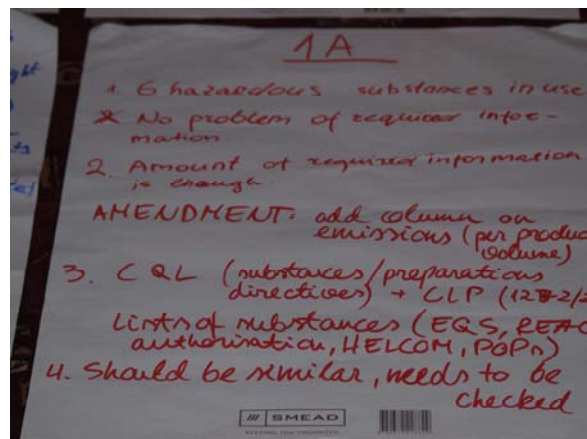 1A
1. 6 hazardous substances in use
No problem of required infor-
mation.
2. Amount of required information
is enough.
AMENDMENT: add column on
emissions (per produc
volume)
3. CQL (substances/preparations
directives) + CLP
Lists of substances (EQS, REAC
authorisation, HELCOM, POPs)
4. Should be similar, needs to be
checked
SMEAD
KEEPING YOU ORGANIZED